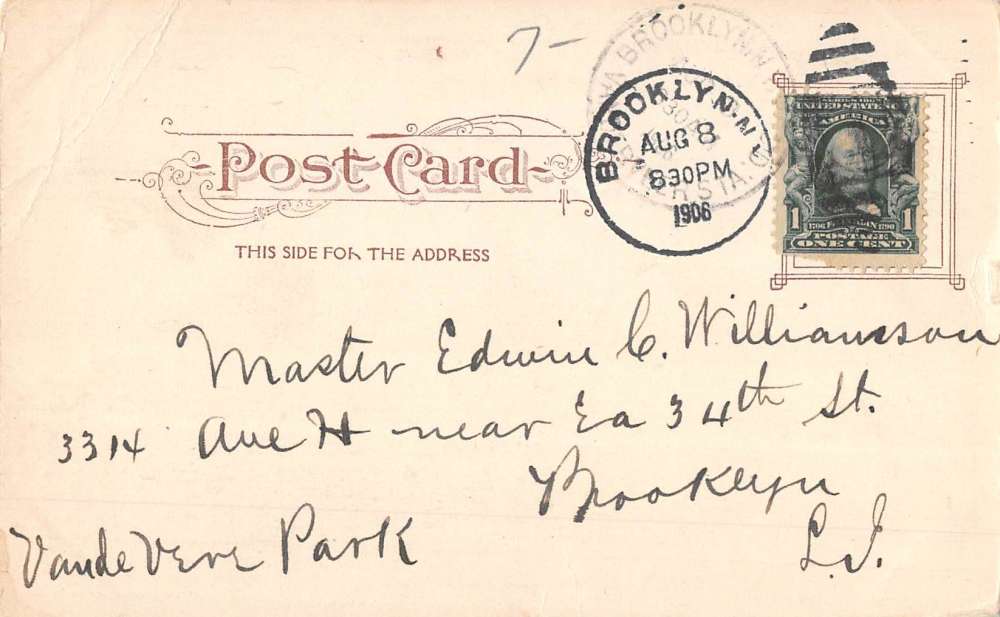 7-
BROOKLYN
BROOKLYN, N.Y.
AUG 8
830PM
1906
SERIES 1902
UNITED STATES OF
AMERICA
1 1706 FRANKLIN 1790 1
POSTAGE
ONE CENT
Post Card
THIS SIDE FOR THE ADDRESS
Master Edwin C. Williamson
3314 Ave H near Ea 34th St.
Brooklyn
Vandevere Park L.I.